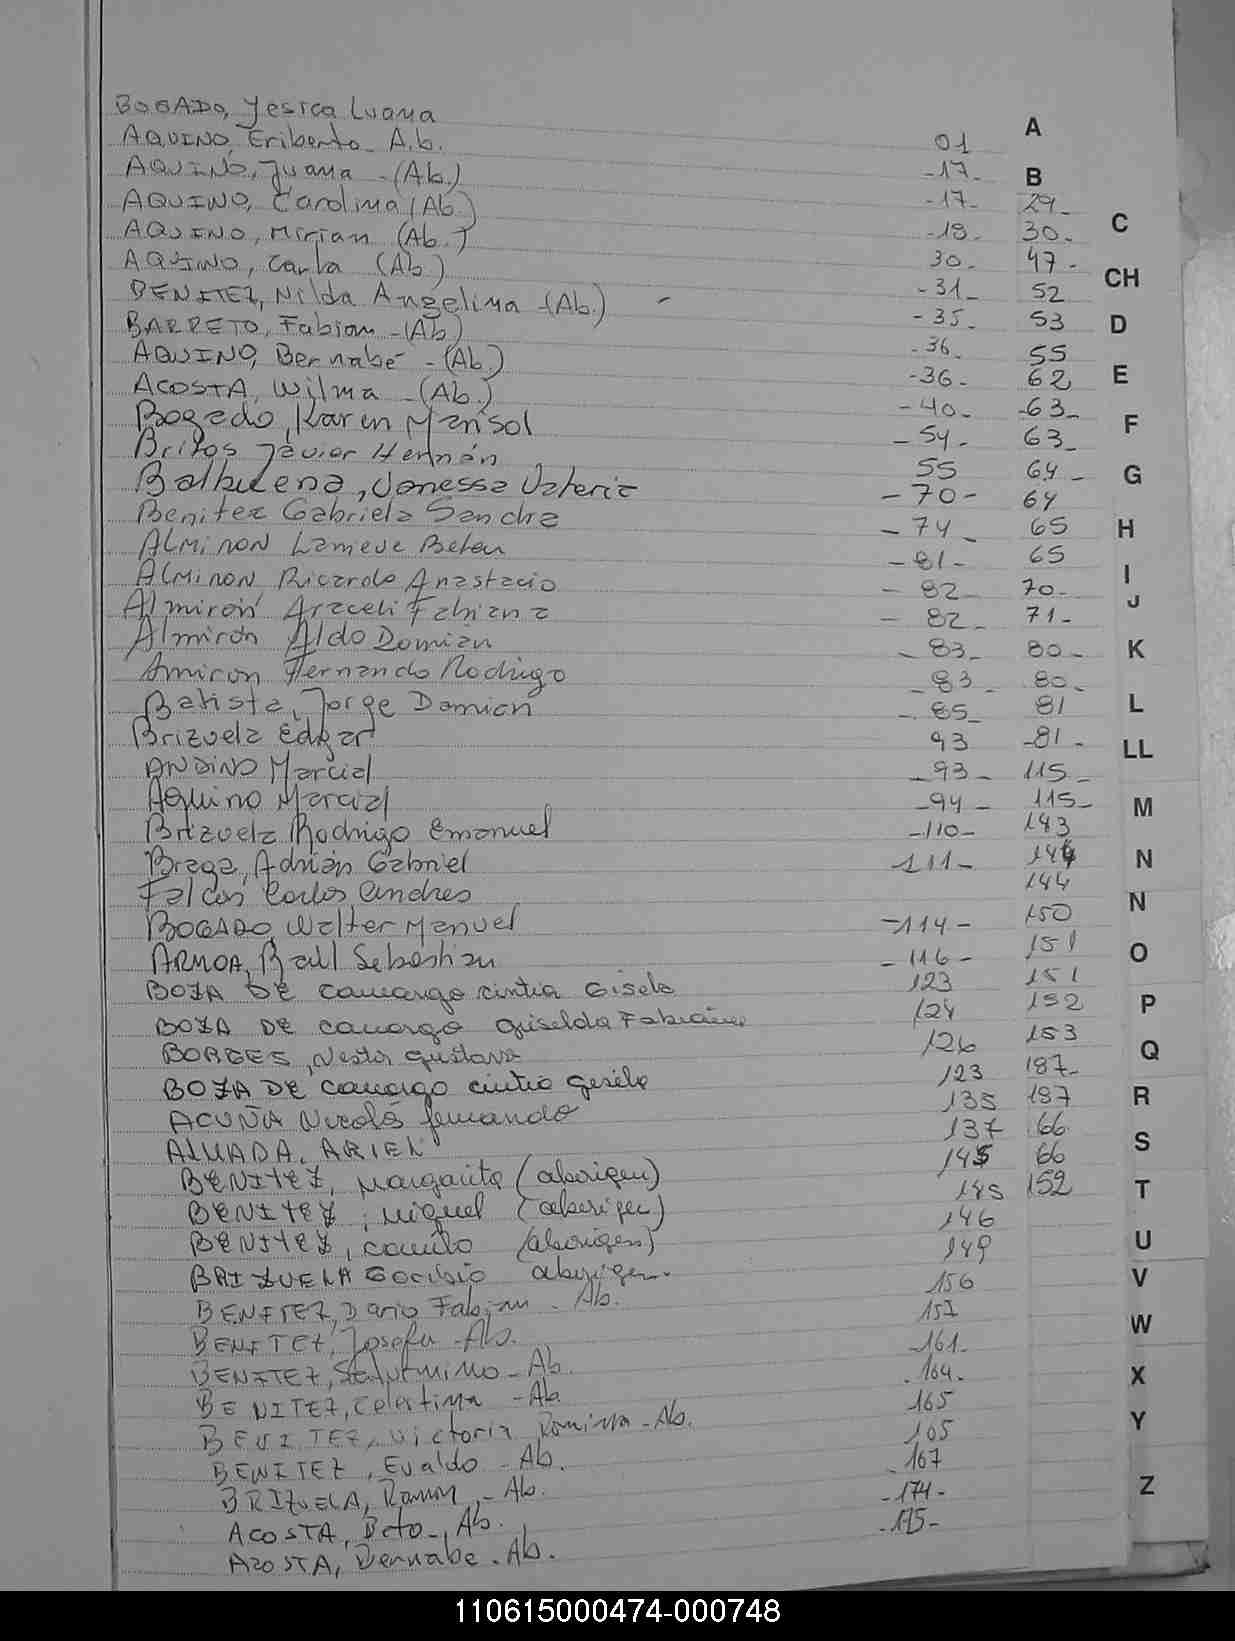 BOGADO, Yesica Luana
AQUINO, Eriberto - A.b. 01 A
AQUINO, Juana - (Ab.) -17- B
AQUINO, Carolina (Ab.) -17- 29- C
AQUINO, Mirian (Ab.) -18- 30-
AQUINO, Carla (Ab.) 30- 47- CH
BENITEZ, Nilda Angelina - (Ab.) - -31- 52
BARRETO, Fabian - (Ab) -35- 53 D
AQUINO, Bernabé - (Ab.) -36- 55
ACOSTA, Wilma - (Ab.) -36- 62 E
Bogado, Karen Marisol -40- -63-
Britos Javier Hernán -54- 63- F
Balbuena, Vanessa Valeria 55 64- G
Benitez Gabriela Sandra -70- 64
ALMIRON Belen -74- 65 H
ALMIRON Ricardo Anastacio -81- 65
Almirón Araceli Fabiana -82- 70- I
Almirón Aldo Domian -82- 71- J
Amiron Fernando Rodrigo -83- 80- K
Batista, Jorge Domian -83- 80-
Brizuela Edgar -85- 81 L
ANDINO Marcial 93 -81- LL
Aquino Marcial -93- 115-
Brizuela Rodrigo Emanuel -94- 115- M
Braga, Adrián Gabriel -110- 143
Falcon Carlos Andres -111- 144 N
BOGADO, Walter Manuel 144 N
ARMOA, Raul Sebastian -114- 150
BOZA DE Camargo cintia Gisela -116- 151 O
BOZA DE camargo Griselda Fabiana 123 151
BORGES, Nestor gustavo 124 152 P
BOZA DE camargo cintia gisela 126 153 Q
ACUÑA Nicolás fernando 123 187-
ALMADA, ARIEL 135 187 R
BENITEZ, Margarita (aborigen) 137 66
BENITEZ, Miguel (aborigen) 145 66 S
BENITEZ, camilo (aborigen) 145 152 T
BRIZUELA aborigen. 146
BENITEZ, Dario Fabian - Ab. 149 U
BENITEZ, Josefa - Ab. 156 V
BENITEZ, Saturnino - Ab. 157
BENITEZ, Celestina - Ab -161- W
BENITEZ, Victoria Romina - Ab. -164- X
BENITEZ, Evaldo - Ab. 165
BRIZUELA, Ramon - Ab. 165 Y
ACOSTA, Beto -, Ab. 167
ACOSTA, Bernabe - Ab. -174- Z
-175-
110615000474-000748